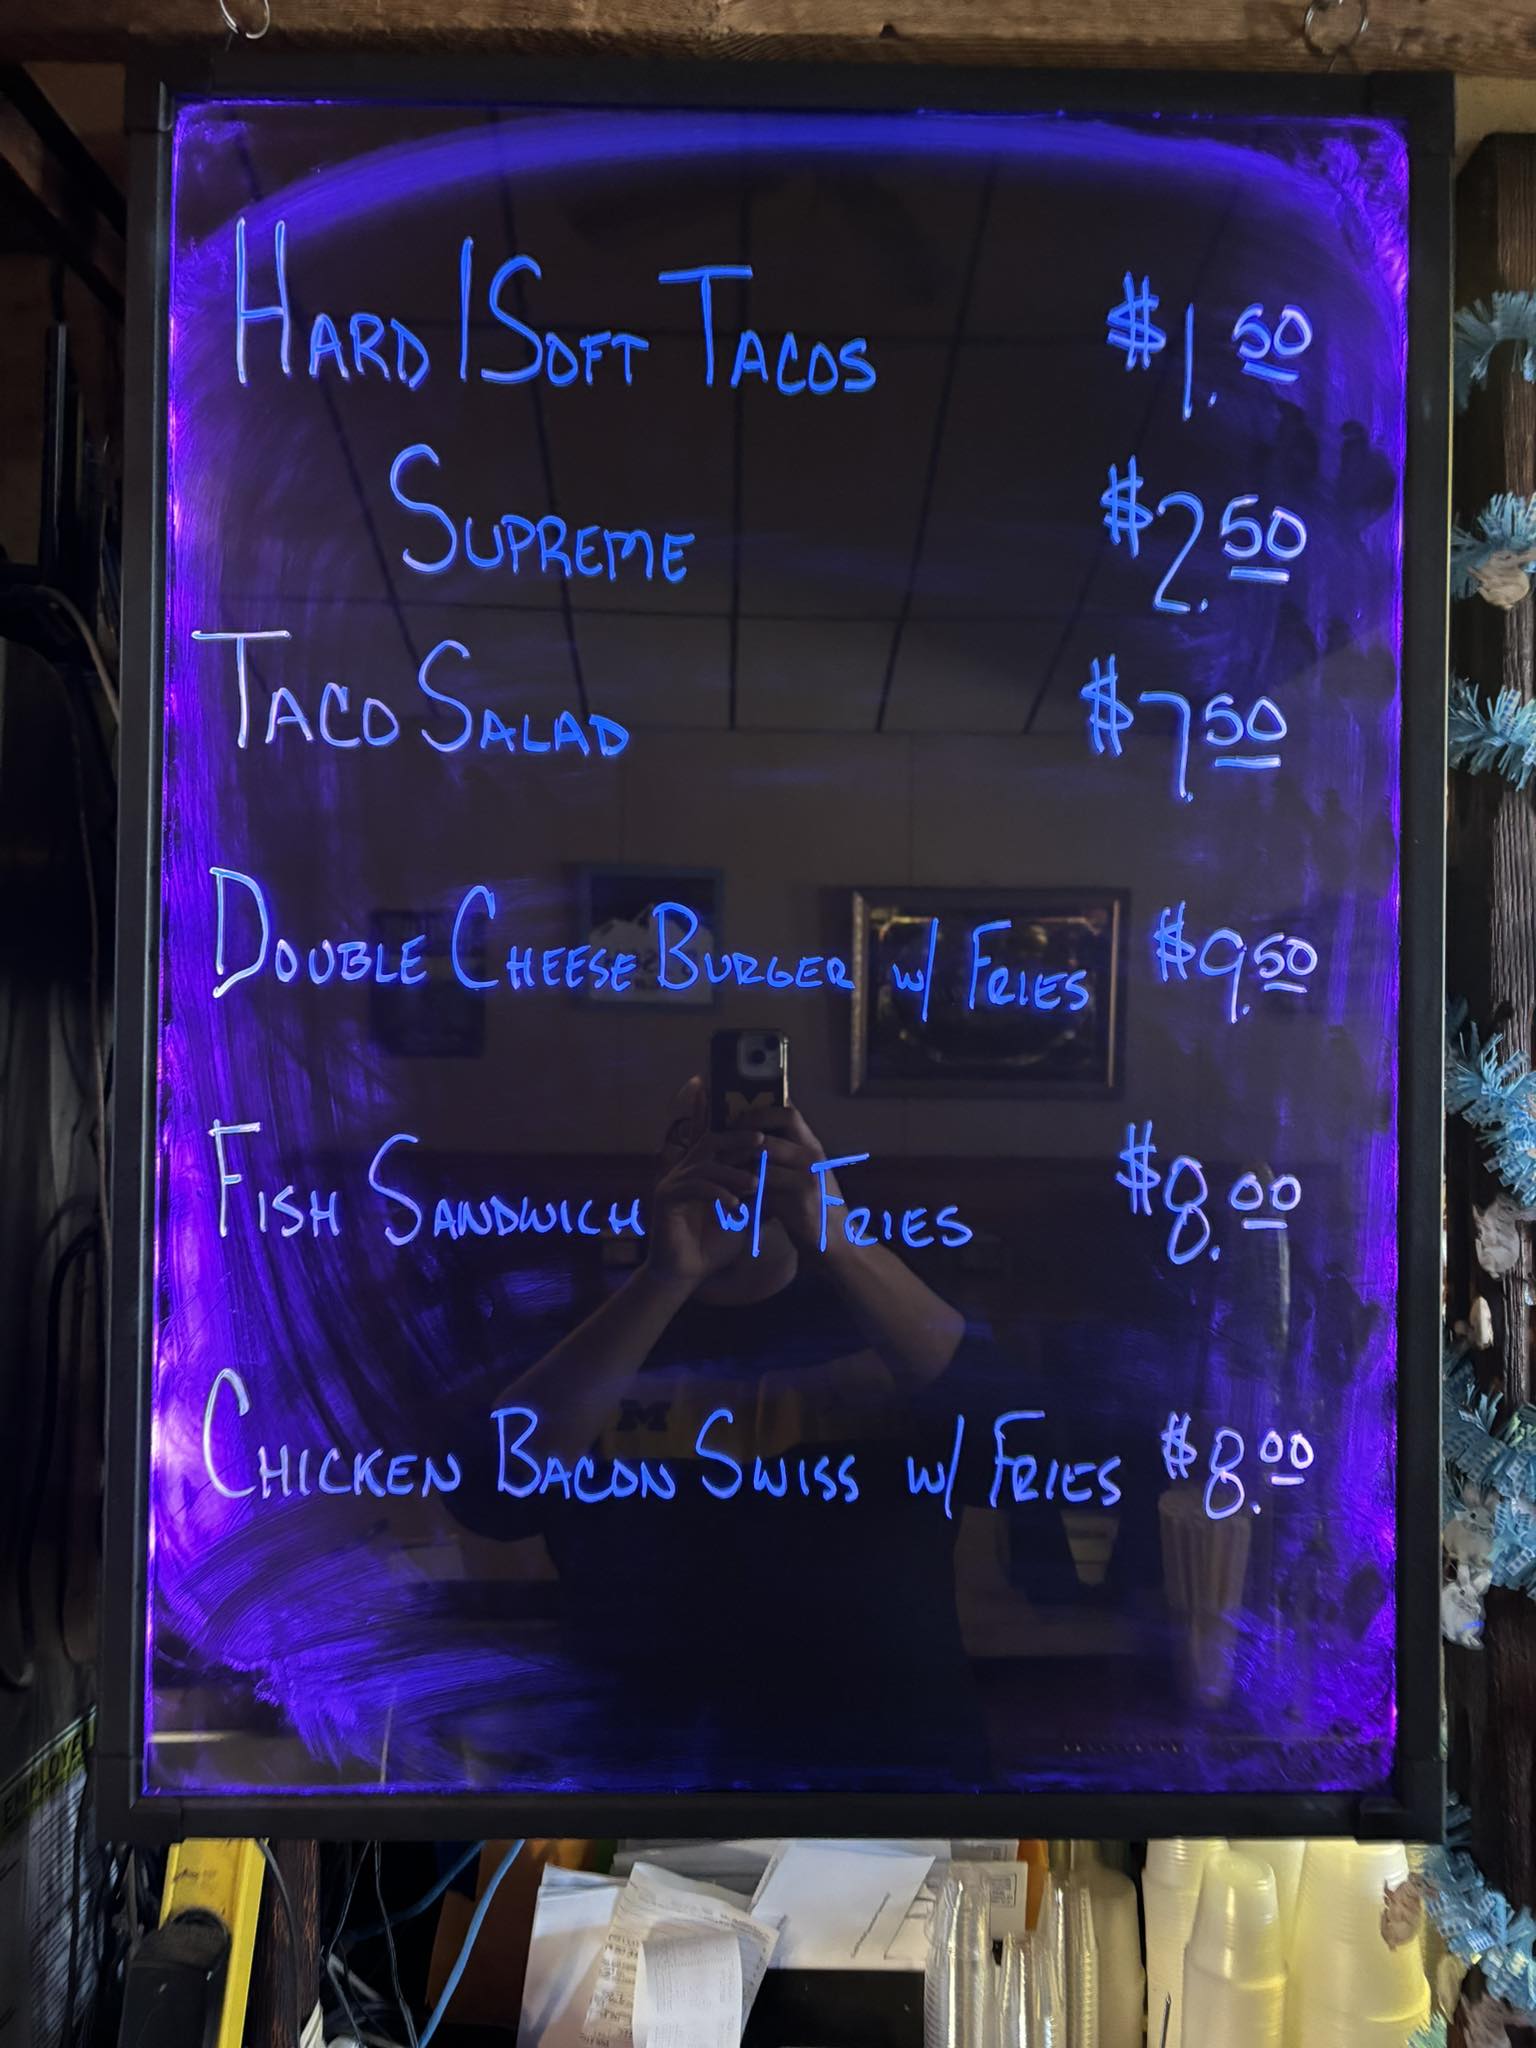 Hard / Soft Tacos $1.50
Supreme $2.50
Taco Salad $7.50
Double Cheese Burger w/ Fries $9.50
Fish Sandwich w/ Fries $8.00
Chicken Bacon Swiss w/ Fries $8.00
M
M
EMPLOYE